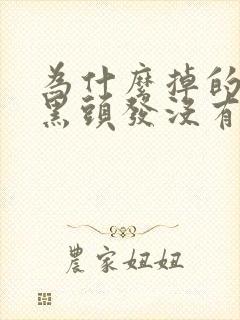 為什麼掉的
黑頭發沒有
農家妞妞